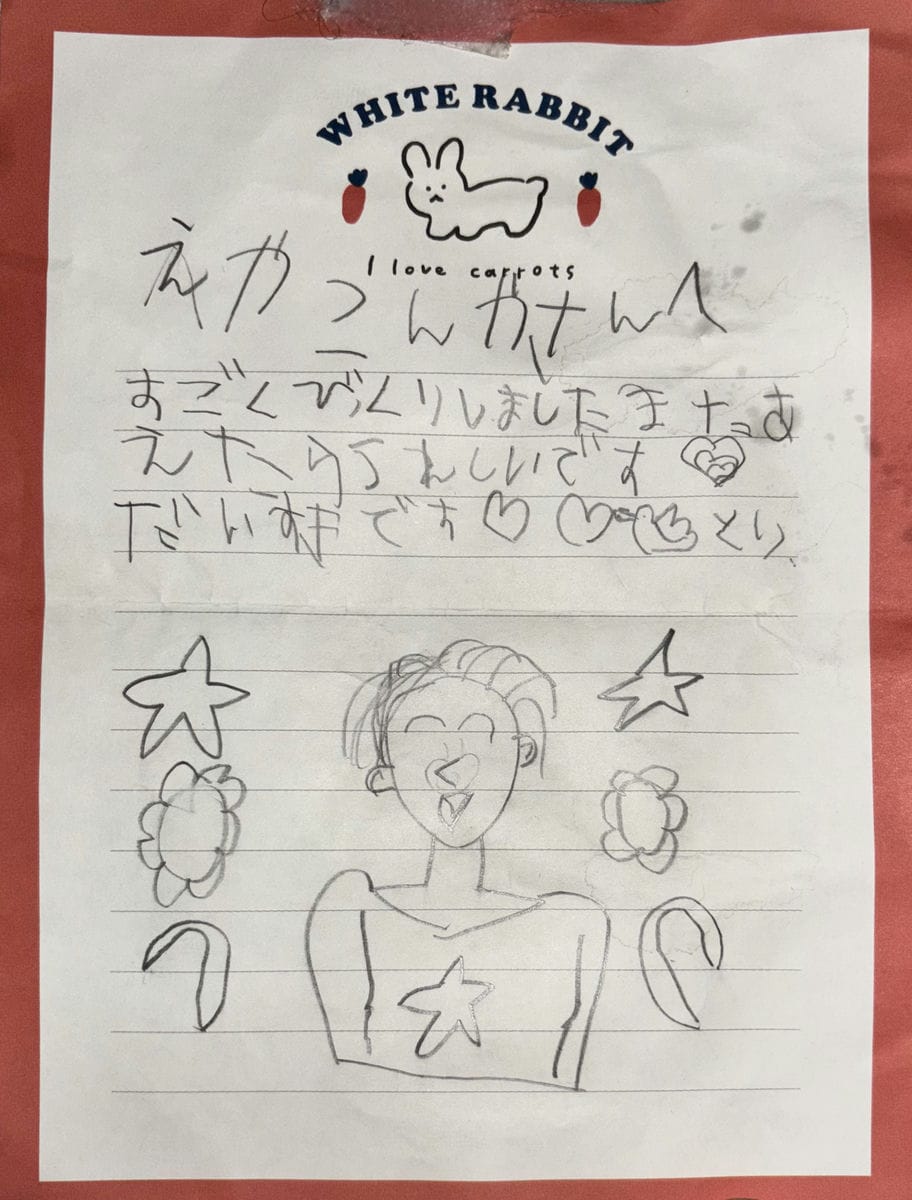 WHITE RABBIT
I love carrots
えかこんかさんへ
すごくびっくりしましたまたあ
えたらうれしいです
だいすきです♡ ♡ より